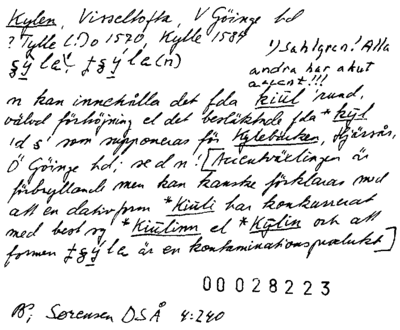 Kylen, Visseltofta, V Göinge hd
? Tylle (!) o 1570, Kylle 1584
1) Sahlgren! Alla
andra har akut
accent!!!
§ỳla 1), ‡§ýla(n)
n kan innehålla det fda kiūl 'rund,
välvd förhöjning' el det besläktade fda *kȳl
'd s' som supponeras för Kylebäcken, Hjärsås,
Ö Göinge hd; se d n! [Accentväxlingen är
förbryllande men kan kanske förklaras med
att en dativform *Kiūli har konkurrerat
med best sg *Kiūlinn el *Kȳlin och att
formen ‡§ýla är en kontaminationsprodukt]
00028223
Sørensen DSÅ 4:240